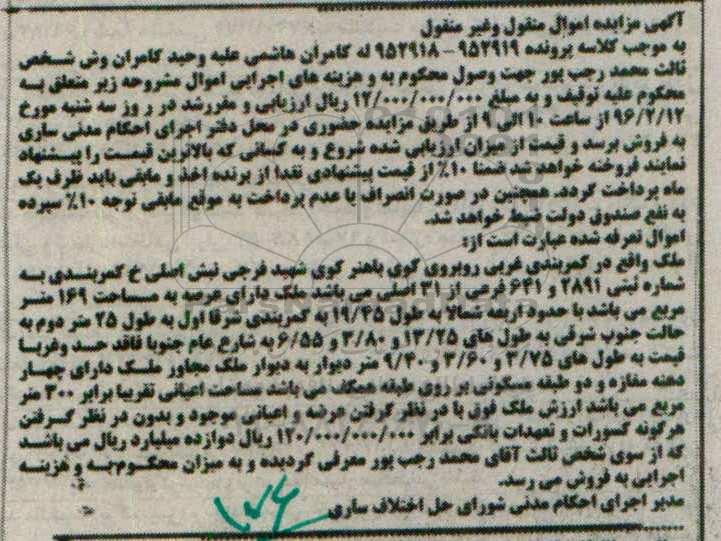 آگهی مزایده اموال منقول وغیر منقول
به موجب کلاسه پرونده ۹۵۲۹۱۹ – ۹۵۲۹۱۸ له کامران هاشمی علیه وحید کامران وش شخص
ثالث محمد رجب پور جهت وصول محکوم به و هزینه های اجرایی اموال مشروحه زیر متعلق به
محکوم علیه توقیف و به مبلغ ۱۲/۰۰۰/۰۰۰/۰۰۰ ریال ارزیابی و مقررشد در روز سه شنبه مورخ
۹۶/۲/۱۲ از ساعت ۱۰ الی ۹ از طریق مزایده حضوری در محل دفتر اجرای احکام مدنی ساری
به فروش برسد و قیمت از میزان ارزیابی شده شروع و به کسانی که بالاترین قیمت را پیشنهاد
نمایند فروخته خواهد شد ضمنا ۱۰٪ از قیمت پیشنهادی نقدا از برنده اخذ و مابقی باید ظرف یک
ماه پرداخت گردد. همچنین در صورت انصراف یا عدم پرداخت به موقع مابقی توجه ۱۰٪ سپرده
به نفع صندوق دولت ضبط خواهد شد.
اموال تعرفه شده عبارت است از:
ملک واقع در کمربندی غربی روبروی کوی باهنر کوی شهید فرجی نبش اصلی خ کمربندی به
شماره ثبتی ۲۸۹۱ و ۶۴۱ فرعی از ۳۱ اصلی می باشد ملک دارای عرصه به مساحت ۱۶۹ متر
مربع می باشد با حدود اربعه شمالا به طول ۱۹/۴۵ به کمربندی شرقا اول به طول ۲۵ متر دوم به
حالت جنوب شرقی به طول های ۱۳/۲۵ و ۳/۸۰ و ۶/۵۵ به شارع عام جنوبا فاقد حد وغربا
قیمت به طول های ۳/۷۵ و ۳/۶۰ و ۹/۴۰ متر دیوار به دیوار ملک مجاور ملک دارای چهار
دهنه مغازه و دو طبقه مسکونی بر روی طبقه همکف می باشد مساحت اعیانی تقریبا برابر ۳۰۰ متر
مربع می باشد ارزش ملک فوق با در نظر گرفتن عرصه و اعیانی موجود و بدون در نظر گرفتن
هرگونه کسورات و تعهدات بانکی برابر ۱۲۰/۰۰۰/۰۰۰/۰۰۰ ریال دوازده میلیارد ریال می باشد
که از سوی شخص ثالث آقای محمد رجب پور معرفی گردیده و به میزان محکوم به و هزینه
اجرایی به فروش می رسد.
مدیر اجرای احکام مدنی شورای حل اختلاف ساری